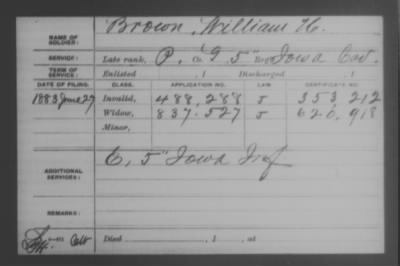 NAME OF SOLDIER: Brown, William H.
SERVICE: Late rank, P, Co. G, 5" Reg't Iowa Cav.
TERM OF SERVICE: Enlisted , 1 Discharged , 1
DATE OF FILING. CLASS. APPLICATION NO. LAW CERTIFICATE NO.
1883 June 27 Invalid, 488,288 J 353,212
Widow, 837.527 J 620,918
Minor,
ADDITIONAL SERVICES: C, 5" Iowa Inf
REMARKS:
Died , 1 , at